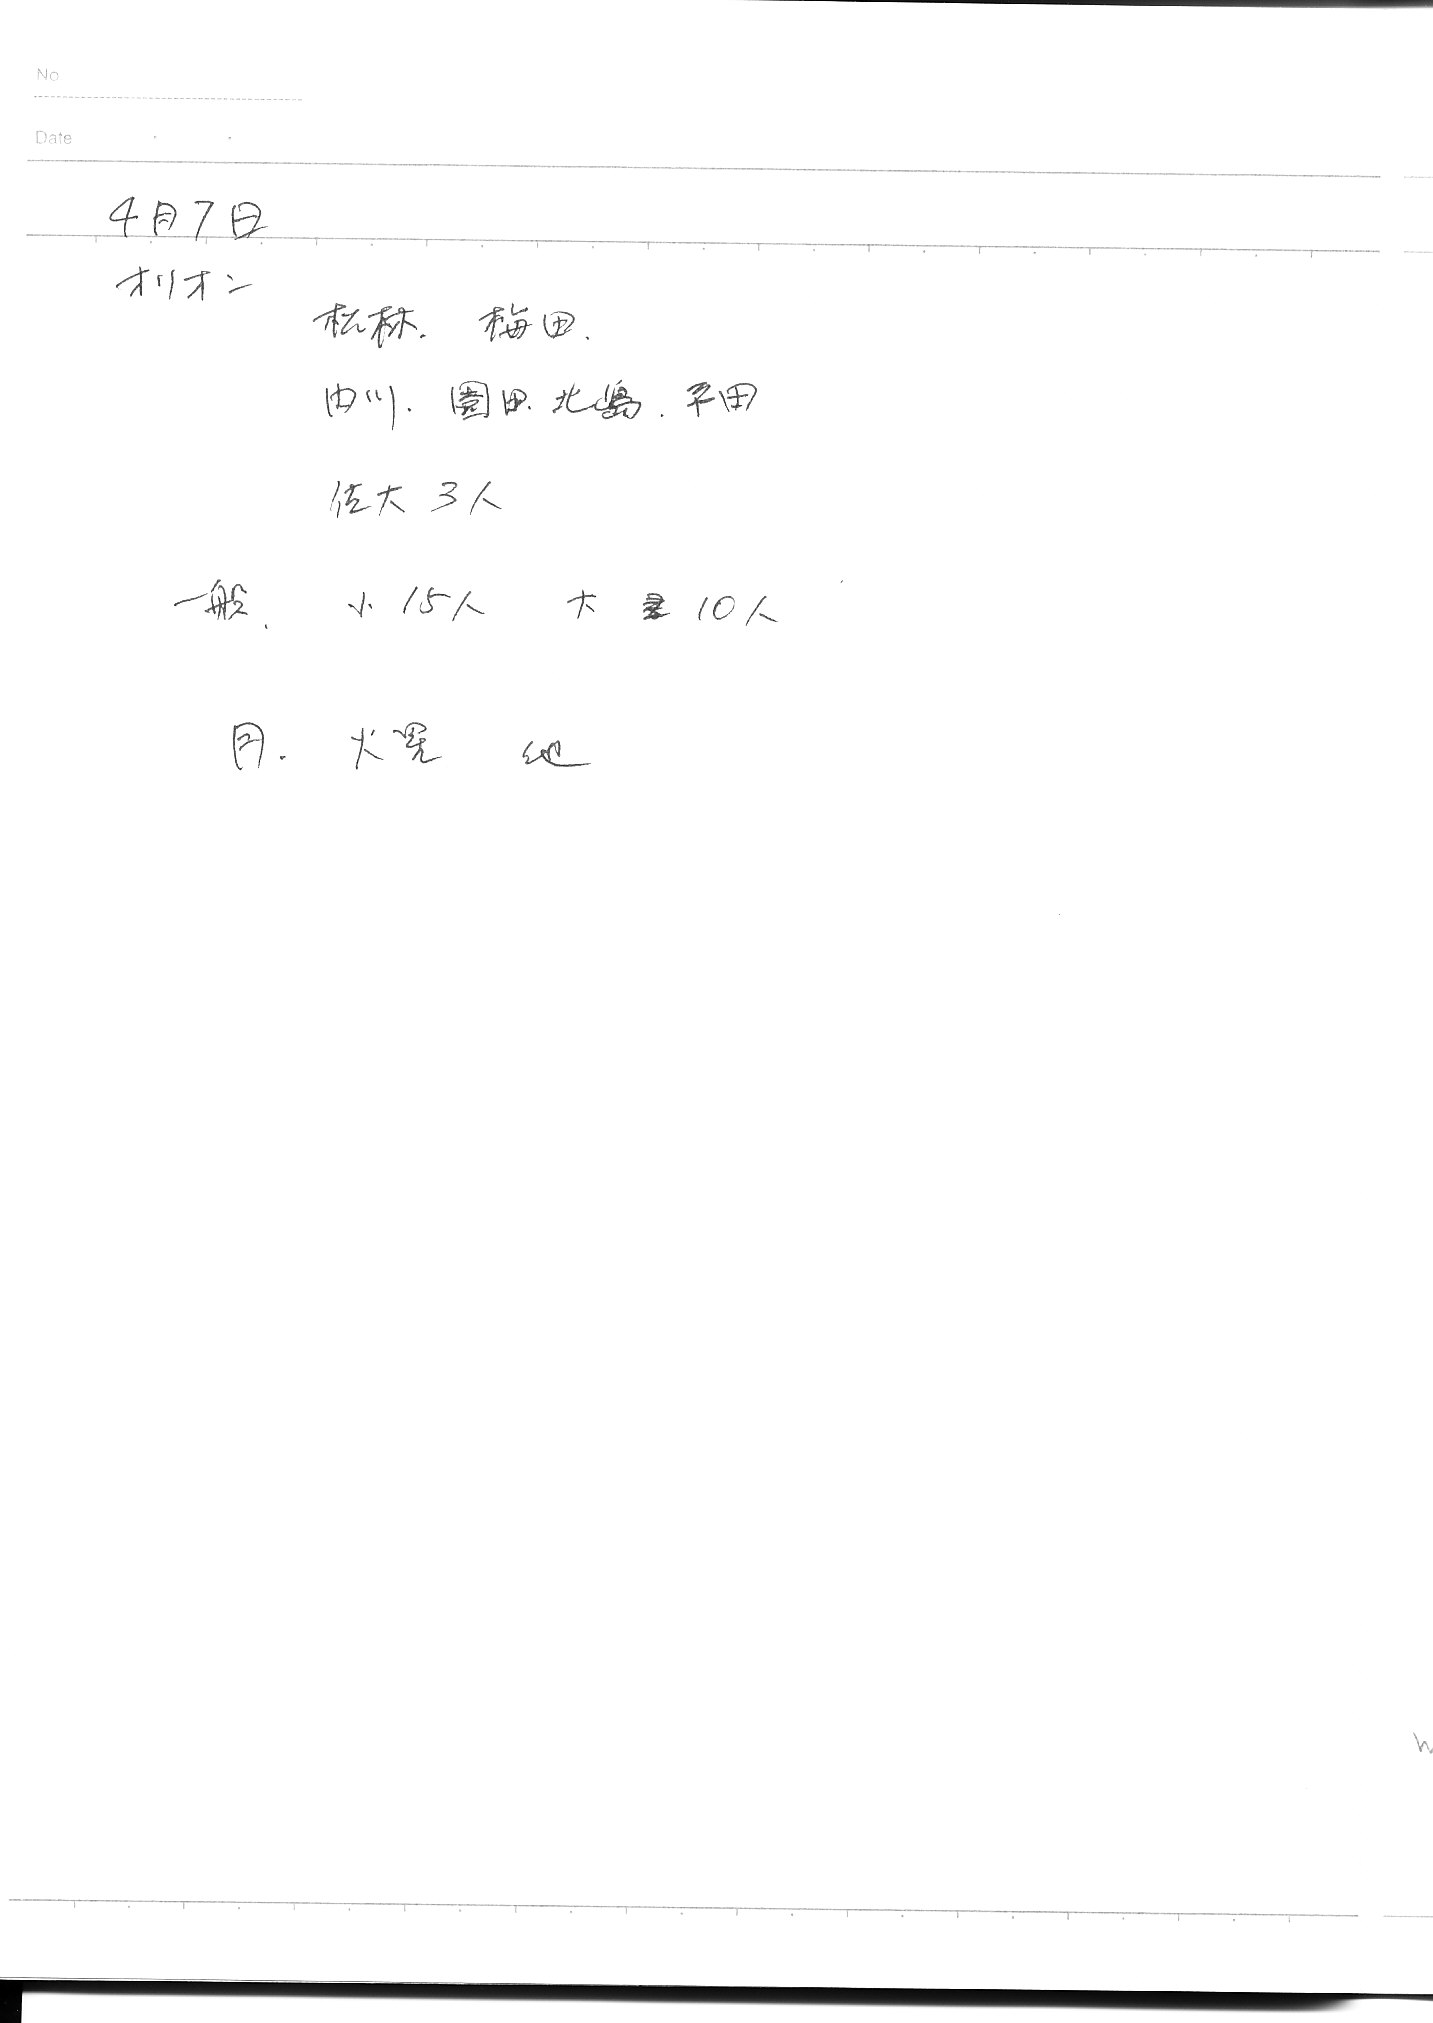 No
Date
4月7日
オリオン
松林. 梅田.
内川. 園田. 北島. 平田
佐大 3人
一般. 小 15人 大 10人
月. 火星 他